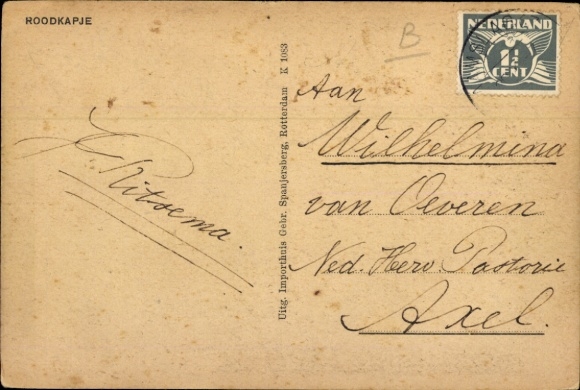 ROODKAPJE
B
NEDERLAND
1½
CENT
Aan
Wilhelmina
van Oeveren
Ned. Herv Pastorie
Axel.
Ritsema.
Uitg. Importhuis Gebr. Spanjersberg, Rotterdam K 1083